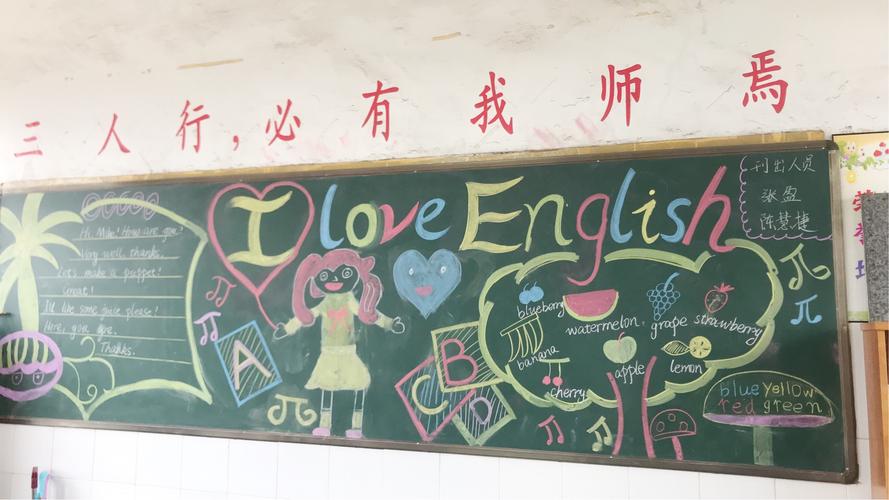 三人行,必有我师焉
I love English
刊出人员
张盈
陈慧捷
Hi, Mike! How are you?
Very well, thanks.
Let's make a puppet!
Great!
I'd like some juice please!
Here you are.
Thanks.
A
B
C
D
blueberry
watermelon
grape
strawberry
banana
apple
lemon
cherry
blue yellow
red green